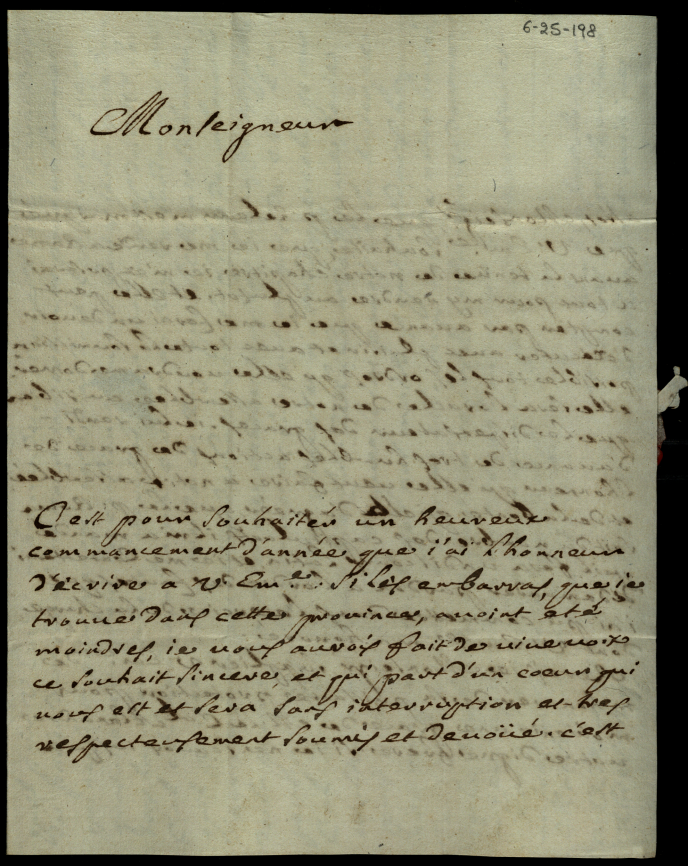 6-25-198
Monseigneur
C'est pour souhaiter un heureux
commancement d'année que i'ai l'honneur
d'écrire a V Em.e. Si les embarras, que ie
trouue dans cette prouince, auoint eté
moindres, ie uous aurois fait de uiue uoix
ce souhait sincere, et qui part d'un coeur qui
uous est et sera sans interruption et tres
respecteusement soumis et deuoüé. c'est